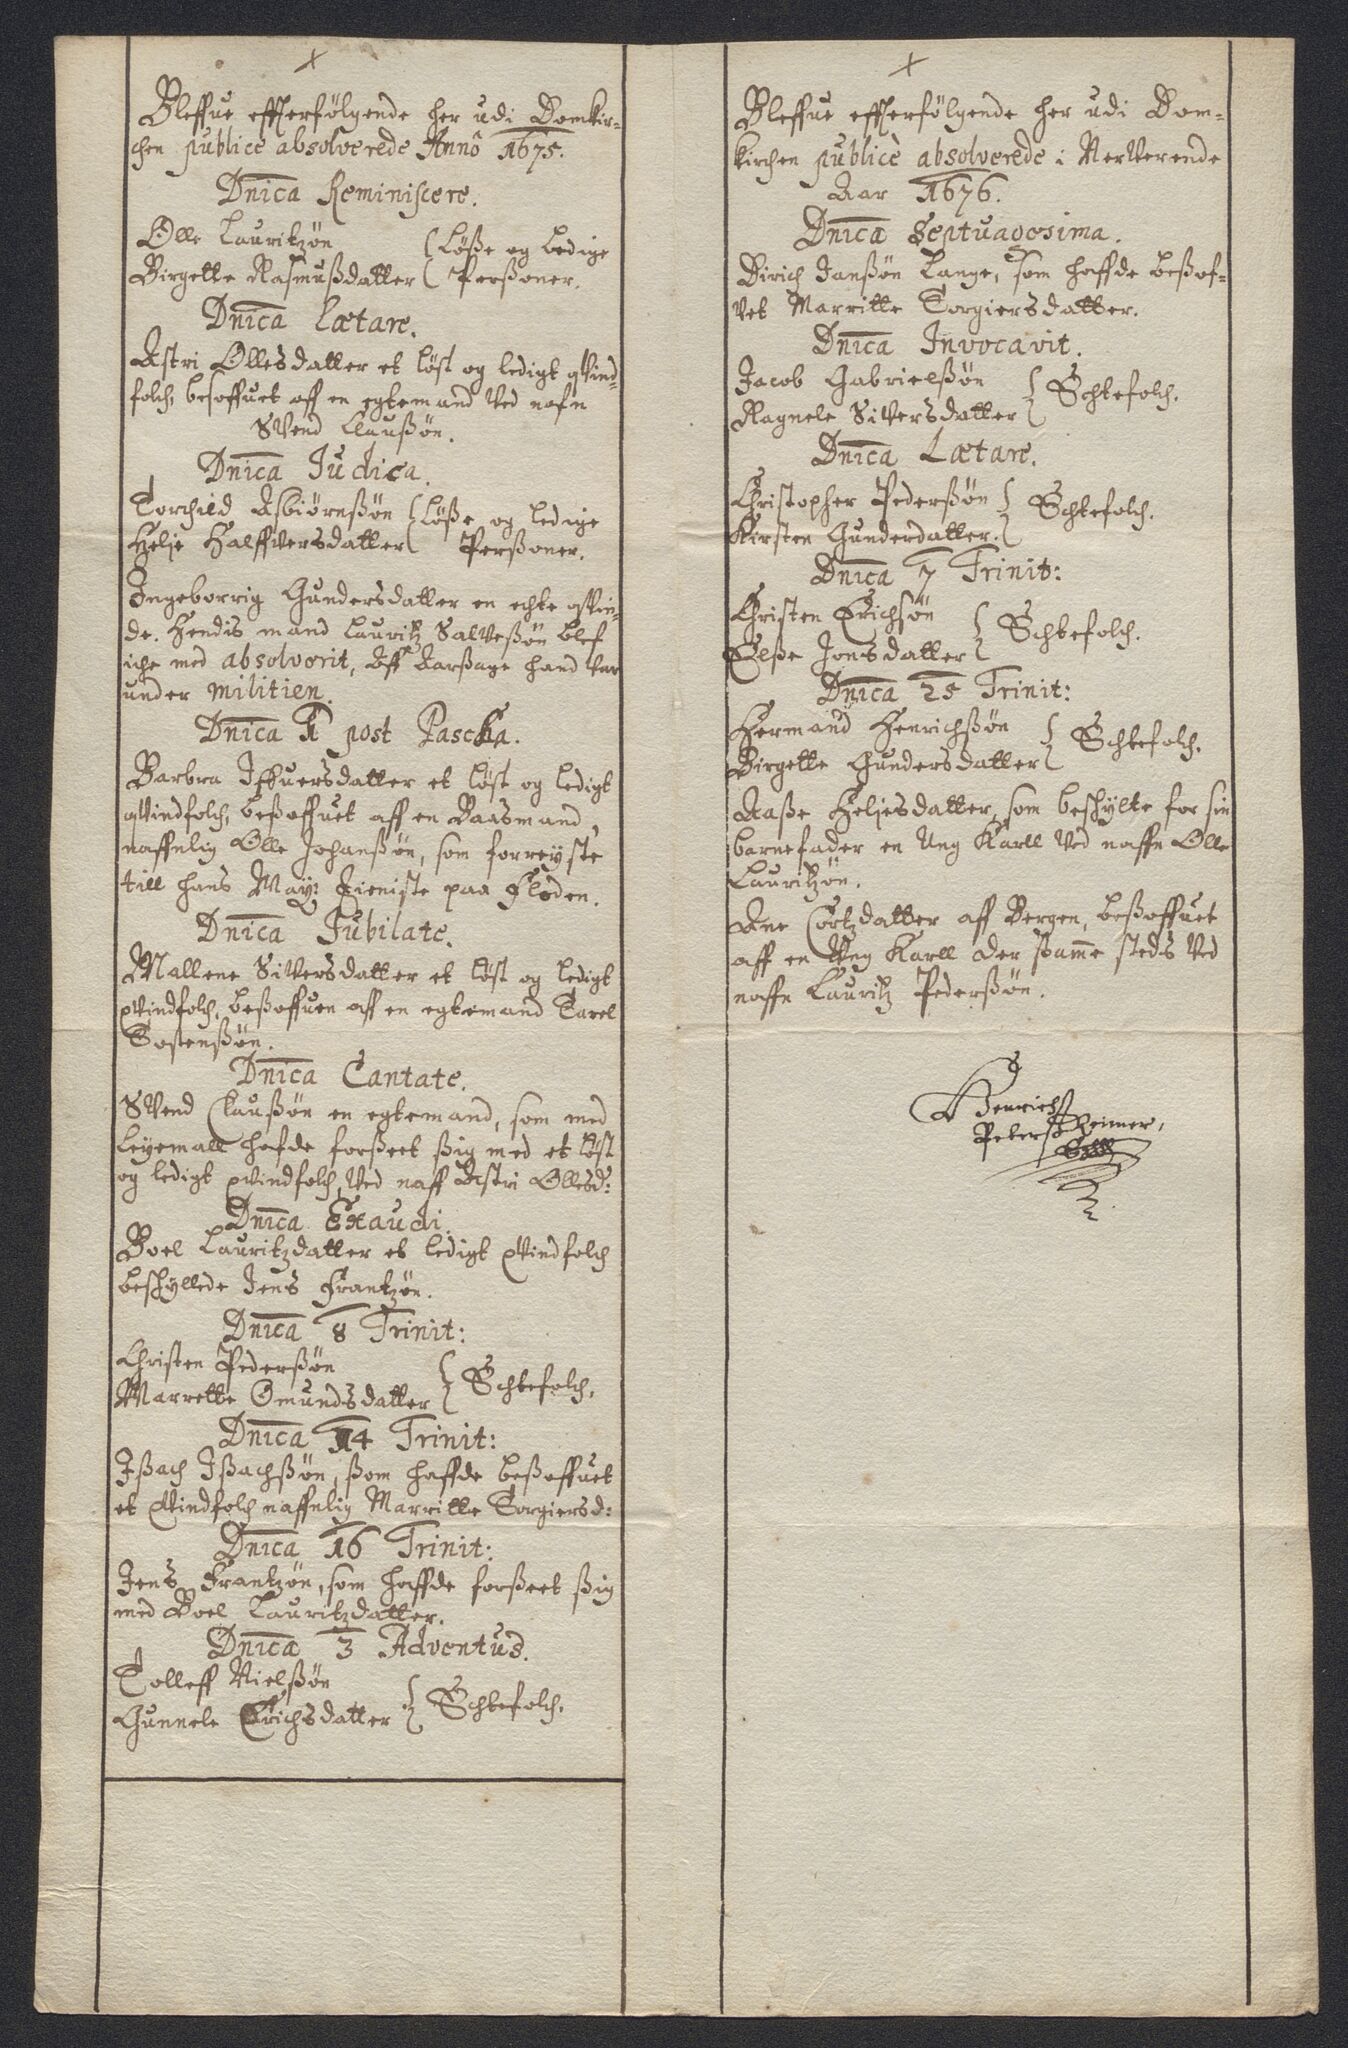 Bleffue effterfölgende her udi Domkir-
chen publicè absolverede Annô 1675.
Dnica Reminiscere.
Olle Lauritzön
Birgette Rasmußdatter
Löße og ledige
Perßoner.
Dnica Lætare.
Astri Ollesdatter et löst og ledigt qVind-
folch, besoffuet aff en egtemand Ved nafn
SVend Clausßön.
Dnica Judica.
Torchild Asbiörnsßön
Helje Halffversdatter
Löße og ledige
Perßoner.
Ingeborrig Gundersdatter en echte qVin-
de. Hendis mand Lauritz SalVesßön blef
iche med absolverit, Aff Aarßage hand Var
under militien.
Dnica 1 post Pascha.
Barbra Iffuersdatter et löst og ledigt
qVindfolch, beßoffuet aff en Baasmand,
naffnlig Olle Johansßön, som forreyste
till hans May: tieniste paa Floden.
Dnica Jubilate.
Mallene SiVersdatter et löst og ledigt
qVindfolch, beßoffuen aff en egtemand Tarel
Tostensßön.
Dnica Cantate.
SVend Clausßön en egtemand, som med
Leyemall hafde forßeet ßig med et löst
og ledigt qVindfolch Ved naff Astri Ollesd:
Dnica Exaudi.
Boel Lauritzdatter et ledigt qVindfolch
beskyllede Jens Frantzön.
Dnica 8 Trinit:
Christen Pedersßön
Marrette Omundsdatter
Echtefolch.
Dnica 14 Trinit:
Ißach Ißachsßön, ßom haffde beßoffuet
et qVindfolch naffnlig Marritte Torgiersd:
Dnica 16 Trinit:
Jens Frantzön, som haffde forßeet ßig
med Boel Lauritzdatter.
Dnica 3 Adventus.
Tolleff Nielsßön
Gunnele Erichsdatter
Echtefolch.
Bleffue effterfölgende her udi Dom-
kirchen publicè absolverede i NerVerende
Aar 1676.
Dnica Septuagesima.
Dirich Jansßön Lange, som haffde beßof-
Vet Marritte Torgiersdatter.
Dnica Invocavit.
Jacob Gabrielsßön
Ragnele SiVersdatter
Echtefolch.
Dnica Lætare.
Christopher Pedersßön
Kirsten Gunderdatter.
Echtefolch.
Dnica 7 Trinit:
Christen Erichsön
Elße Jonsdatter
Echtefolch.
Dnica 25 Trinit:
Hermand Henrichsßön
Birgette Gundersdatter
Echtefolch.
Aaße Heljesdatter, som beskylte for sin
barnefader en Ung Karll Ved naffn Olle
Lauritzön.
Ane Cortzdatter aff Bergen, beßoffuet
aff en Ung Karll der ßamme steds Ved
naffn Lauritz Pedersßön.
Henrich